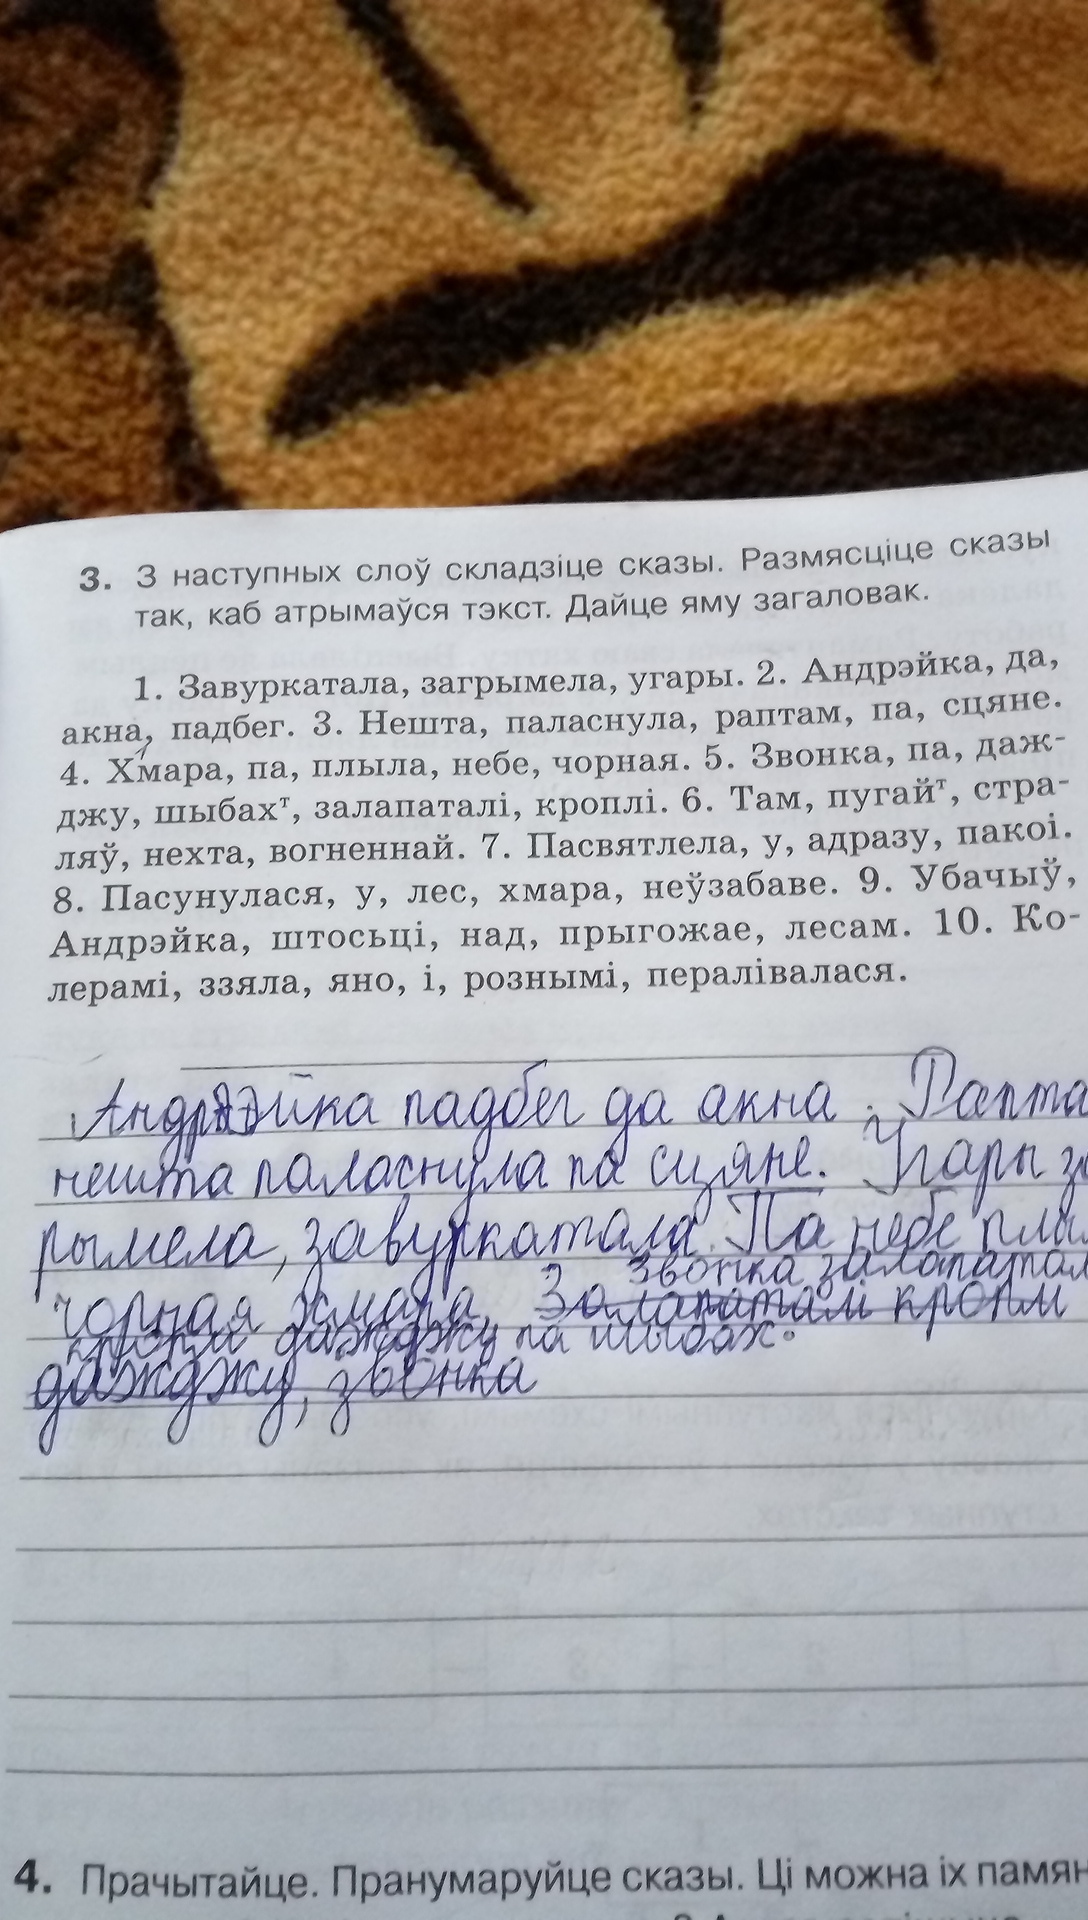 3. З наступных слоў складзіце сказы. Размясціце сказы
так, каб атрымаўся тэкст. Дайце яму загаловак.
1. Завуркатала, загрымела, угары. 2. Андрэйка, да,
акна, падбег. 3. Нешта, паласнула, раптам, па, сцяне.
4. Хмара, па, плыла, небе, чорная. 5. Звонка, па, даж-
джу, шыбахᵀ, залапаталі, кроплі. 6. Там, пугайᵀ, стра-
ляў, нехта, вогненнай. 7. Пасвятлела, у, адразу, пакоі.
8. Пасунулася, у, лес, хмара, неўзабаве. 9. Убачыў,
Андрэйка, штосьці, над, прыгожае, лесам. 10. Ко-
лерамі, ззяла, яно, і, рознымі, пералівалася.
Андрэйка падбег да акна. Рапта
нешта паласнула па сцяне. Угары за
рымела, завуркатала. Па небе плы
звонка залапатал
чорная хмара. Залапаталі кроплі
кроплі дажджу па шыбах.
дажджу, звонка
4. Прачытайце. Пранумаруйце сказы. Ці можна іх памян